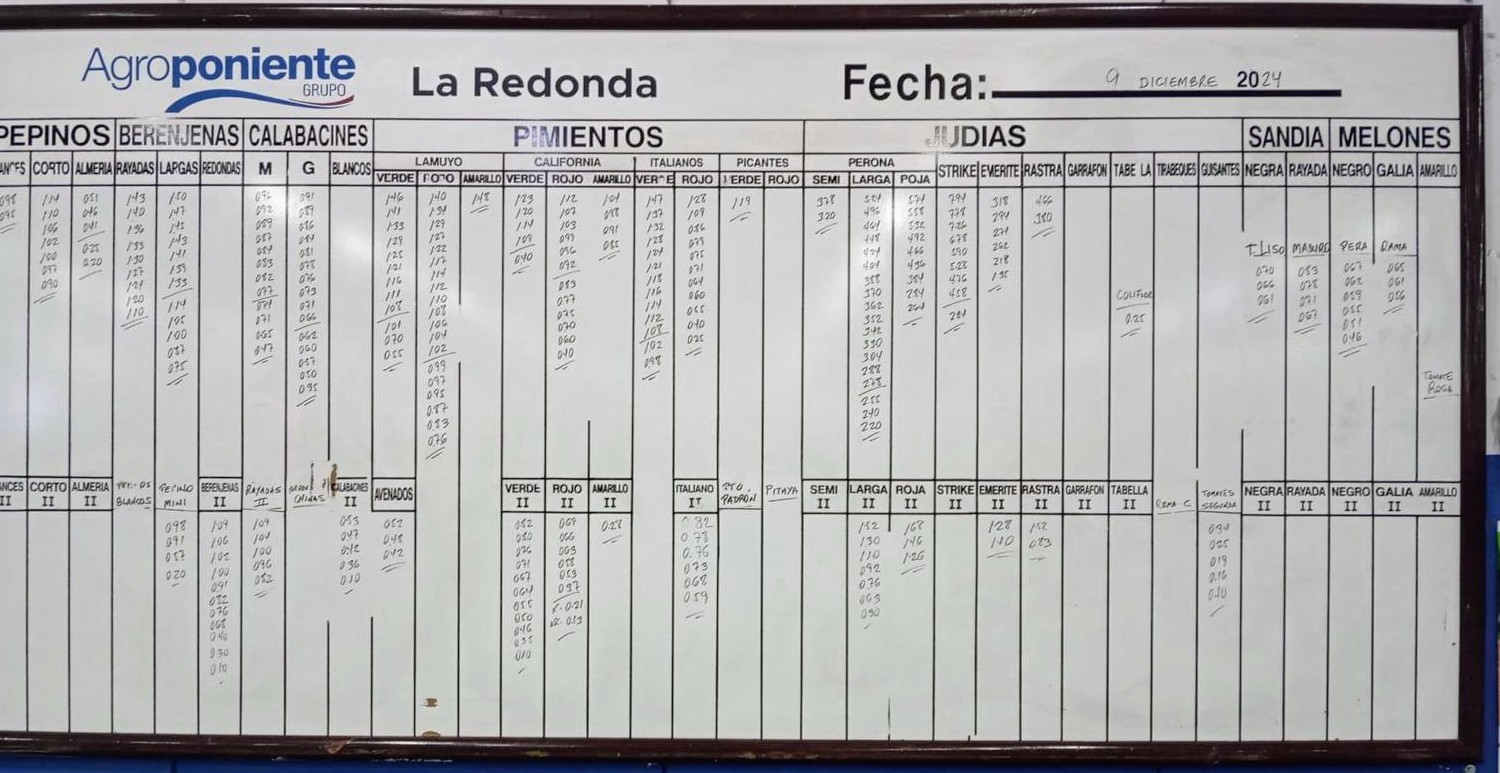 Agroponiente
GRUPO
La Redonda
Fecha: 9 DICIEMBRE 2024
PEPINOS BERENJENAS CALABACINES PIMIENTOS JUDIAS SANDIA MELONES
LAMUYO CALIFORNIA ITALIANOS PICANTES PERONA
CORTO ALMERIA RAYADAS LARGAS REDONDAS M G BLANCOS VERDE ROJO AMARILLO VERDE ROJO AMARILLO VERDE ROJO VERDE ROJO SEMI LARGA ROJA STRIKE EMERITE RASTRA GARRAFON TABE LA TIRABEQUES GUISANTES NEGRA RAYADA NEGRO GALIA AMARILLO
098 114 051 143 150 096 091 146 140 148 123 112 104 147 128 119 378 524 574 794 318 466
095 110 046 140 147 092 089 141 134 120 107 098 137 109 320 496 558 778 294 380
106 041 136 145 089 086 133 127 114 103 091 132 086 464 532 726 274
102 025 133 143 087 084 129 127 109 099 085 128 079 448 492 678 262
100 020 130 141 084 081 125 122 040 096 124 075 424 466 590 218
097 127 139 083 078 121 117 092 121 071 404 436 528 195
090 124 133 082 076 116 114 083 118 064 388 384 476
120 114 077 073 111 112 077 116 060 370 284 418
110 108 074 071 108 110 075 114 055 362 264 284
100 071 066 101 108 070 112 040 352
087 065 062 070 106 060 108 025 342
075 047 060 055 104 040 102 330
057 102 098 304
050 099 288
035 097 278
095 255
0.87 240
0.83 220
0.76
T. LISO MADURO PERA RAMA
070 083 067 065
066 078 062 061
061 071 059 056
067 055
051
046
COLIFLOR
0.25
TOMATE
ROSA
CORTO II ALMERIA II BLANCOS PEPINO MINI BERENJENAS II RAYADAS II CHINAS CALABACINES II AVENADOS VERDE II ROJO II AMARILLO II ITALIANO II PTO. PADRON PITAYA SEMI II LARGA II ROJA II STRIKE II EMERITE II RASTRA II GARRAFON II TABELLA II RAMA-C TOMATES SEGUNDA NEGRA II RAYADA II NEGRO II GALIA II AMARILLO II
098 109 109 053 052 082 069 0.28 0.82 152 168 128 152 034
091 106 104 047 048 080 066 0.78 130 146 110 083 025
057 102 100 042 042 076 063 0.76 110 126 019
020 100 096 036 071 058 0.73 092 0.16
091 082 010 067 053 0.68 076 0.10
082 064 037 0.59 063
076 055 X-0.21 030
068 050 XX-0.13
040 046
030 035
010 010